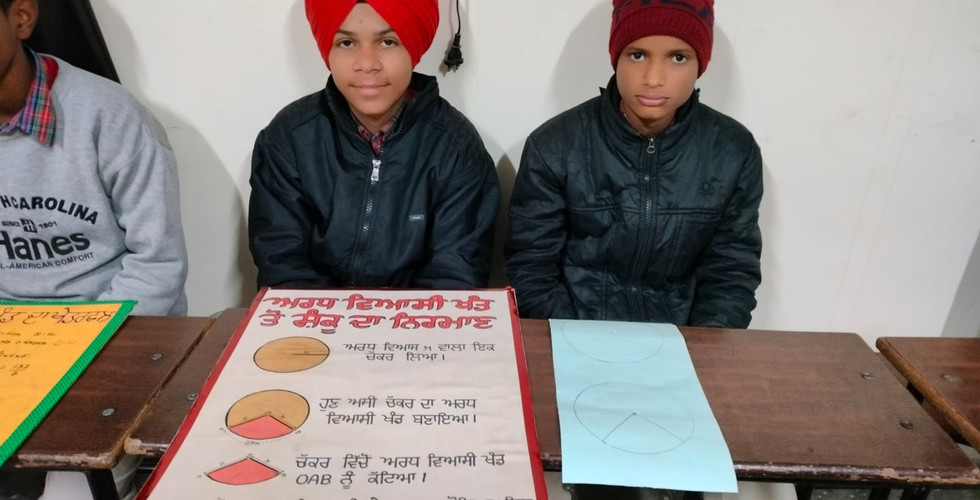 H CAROLINA
SINCE 1901
Hanes
ALL-AMERICAN COMFORT
ਦਾ ਖੇਤਰਫਲ
ਅਰਧ ਵਿਆਸੀ ਖੰਡ
ਤੋਂ ਸ਼ੰਕੂ ਦਾ ਨਿਰਮਾਣ
ਅਰਧ ਵਿਆਸ r ਵਾਲਾ ਇਕ
ਚੱਕਰ ਲਿਆ।
ਹੁਣ ਅਸੀ ਚੱਕਰ ਦਾ ਅਰਧ
ਵਿਆਸੀ ਖੰਡ ਬਣਾਇਆ।
ਚੱਕਰ ਵਿੱਚੋਂ ਅਰਧ ਵਿਆਸੀ ਖੰਡ
OAB ਨੂੰ ਕੱਟਿਆ।